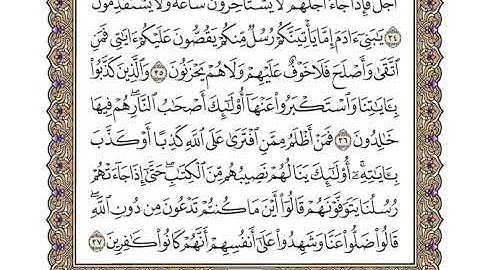 أَجَلٌ فَإِذَا جَآءَ أَجَلُهُمْ لَا يَسْتَأْخِرُونَ سَاعَةً وَلَا يَسْتَقْدِمُونَ
٣٤ يَٰبَنِىٓ ءَادَمَ إِمَّا يَأْتِيَنَّكُمْ رُسُلٌ مِّنكُمْ يَقُصُّونَ عَلَيْكُمْ ءَايَٰتِى فَمَنِ
ٱتَّقَىٰ وَأَصْلَحَ فَلَا خَوْفٌ عَلَيْهِمْ وَلَا هُمْ يَحْزَنُونَ ٣٥ وَٱلَّذِينَ كَذَّبُوا۟
بِـَٔايَٰتِنَا وَٱسْتَكْبَرُوا۟ عَنْهَآ أُو۟لَٰٓئِكَ أَصْحَٰبُ ٱلنَّارِ هُمْ فِيهَا
خَٰلِدُونَ ٣٦ فَمَنْ أَظْلَمُ مِمَّنِ ٱفْتَرَىٰ عَلَى ٱللَّهِ كَذِبًا أَوْ كَذَّبَ
بِـَٔايَٰتِهِۦٓ أُو۟لَٰٓئِكَ يَنَالُهُمْ نَصِيبُهُم مِّنَ ٱلْكِتَٰبِ حَتَّىٰٓ إِذَا جَآءَتْهُمْ
رُسُلُنَا يَتَوَفَّوْنَهُمْ قَالُوٓا۟ أَيْنَ مَا كُنتُمْ تَدْعُونَ مِن دُونِ ٱللَّهِ
قَالُوا۟ ضَلُّوا۟ عَنَّا وَشَهِدُوا۟ عَلَىٰٓ أَنفُسِهِمْ أَنَّهُمْ كَانُوا۟ كَٰفِرِينَ ٣٧